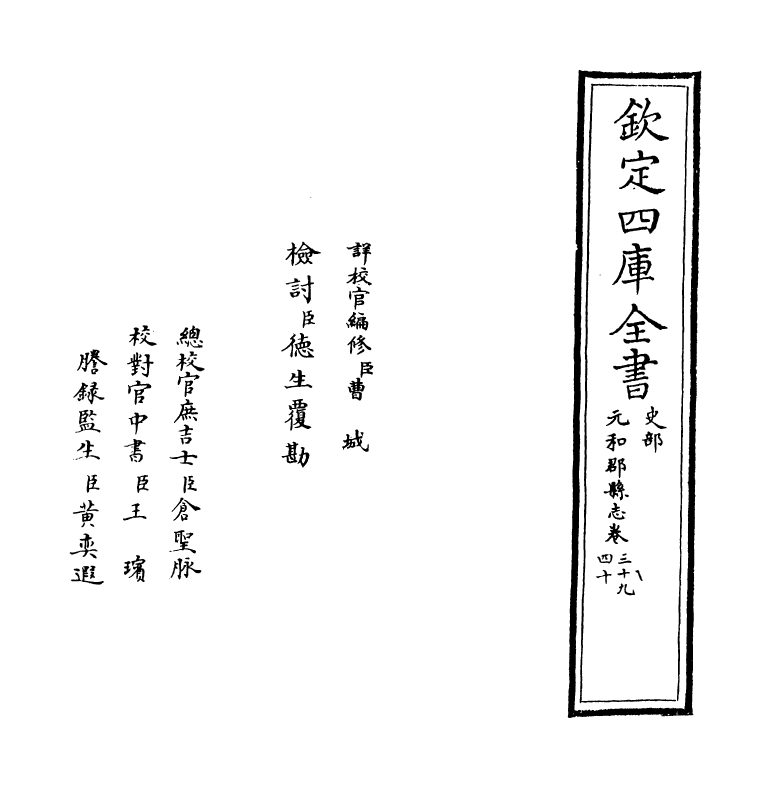 欽定四庫全書
史部
元和郡縣志卷三十九
四十
詳校官編修臣曹城
檢討臣德生覆勘
總校官庶吉士臣倉聖脉
校對官中書臣王瓆
謄錄監生臣黃奕遐